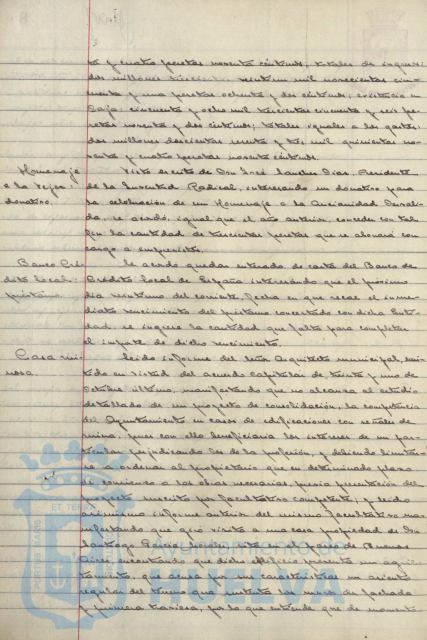 ta y cuatro pesetas noventa céntimos; totales de ingresos:
dos millones trescientas veintiun mil novecientas cin-
cuenta y una pesetas ochenta y dos céntimos; existencia en
Caja: cincuenta y ocho mil trescientas cincuenta y seis pe-
setas noventa y dos céntimos; totales iguales a los gastos:
dos millones doscientas sesenta y tres mil quinientas no-
venta y cuatro pesetas noventa céntimos.
Homenaje
a la Vejez:
donativo.
Visto escrito de Don José Sánchez Díaz, Presidente
de la Juventud Radical, interesando un donativo para
la celebración de un Homenaje a la Ancianidad
do, se acordó, igual que el año anterior, conceder con tal
fin la cantidad de trescientas pesetas que se abonará con
cargo a imprevistos.
Banco Cré-
dito Local:
préstamo.
Se acordó quedar enterado de carta del Banco de
Crédito Local de España interesando que el próximo
día veintiuno del corriente, fecha en que recae el inme-
diato vencimiento del préstamo concertado con dicha Enti-
dad, se ingrese la cantidad que falta para completar
el importe de dicho vencimiento.
Casa rui-
nosa.
Leído informe del señor Arquitecto municipal, emi-
tido en virtud del acuerdo capitular de treinta y uno de
Octubre último, manifestando que no alcanza al estudio
detallado de un proyecto de consolidación, la competencia
del Ayuntamiento en casos de edificaciones con señales de
ruina, pues con ello beneficiaría los intereses de un par-
ticular perjudicando los de la profesión, y debiendo limitar-
se a ordenar al propietario que en determinado plazo
dé comienzo a las obras necesarias, previa presentación del
proyecto suscrito por facultativo competente; y leído
asimismo informe anterior del mismo facultativo ma-
nifestando que giró visita a una casa propiedad de Don
Santiago García, sita en la de Buenos
Aires, encontrando que dicho edificio presenta un agrie-
tamiento, que acusa por sus características un asiento
regular del terreno que sustenta los muros de fachada
y primera traviesa, por lo que entiende que de momento
Ayuntamiento
HUELVA